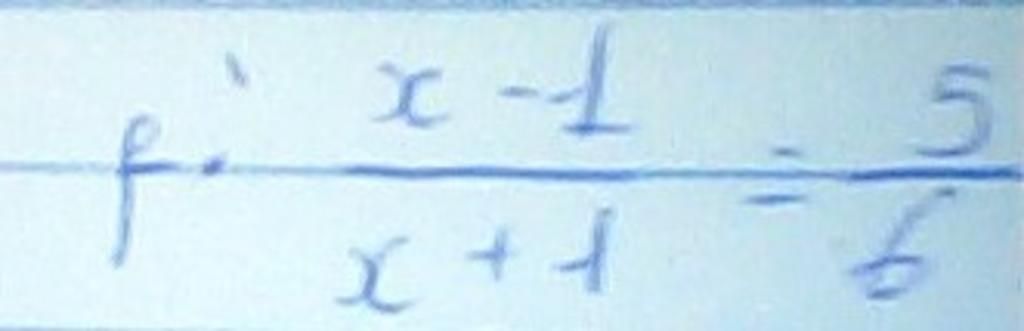 f. x - 1 / x + 1 = 5 / 6